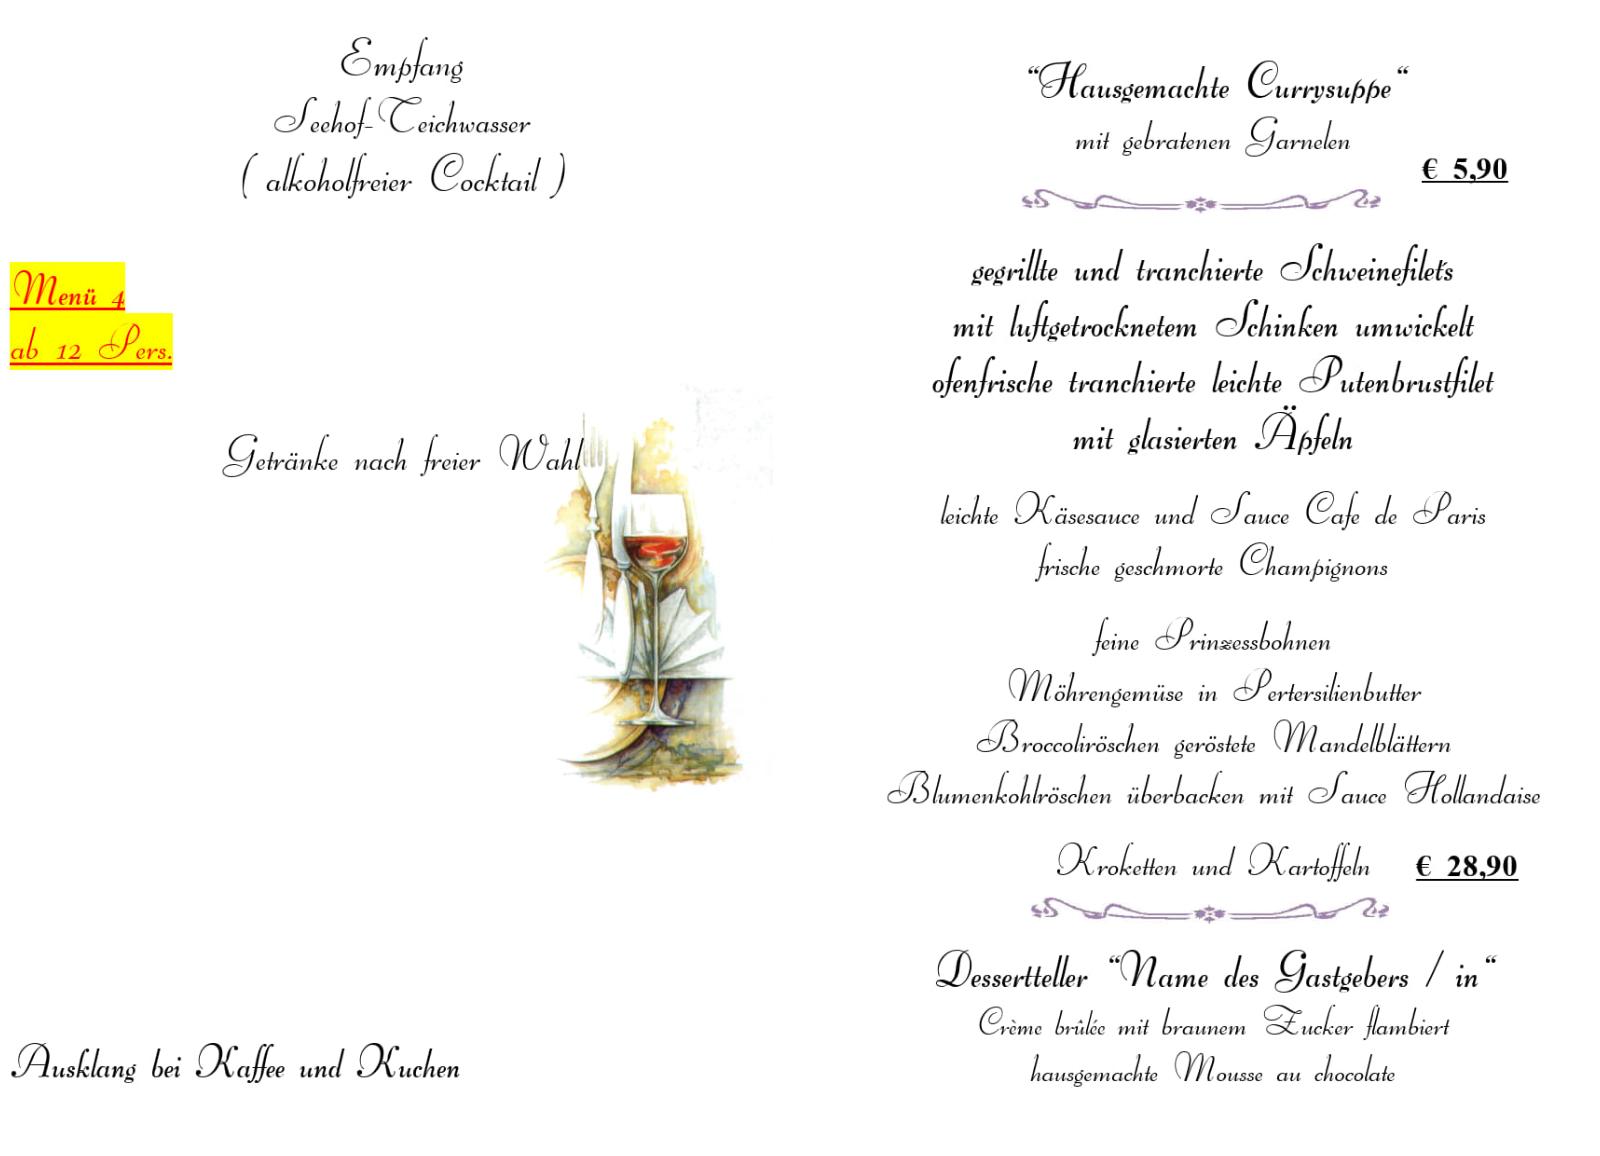 Empfang
Seehof-Teichwasser
( alkoholfreier Cocktail )
Menü 4
ab 12 Pers.
Getränke nach freier Wahl
Ausklang bei Kaffee und Kuchen
“Hausgemachte Currysuppe“
mit gebratenen Garnelen
€ 5,90
gegrillte und tranchierte Schweinefilet's
mit luftgetrocknetem Schinken umwickelt
ofenfrische tranchierte leichte Putenbrustfilet
mit glasierten Äpfeln
leichte Käsesauce und Sauce Cafe de Paris
frische geschmorte Champignons
feine Prinzessbohnen
Möhrengemüse in Pertersilienbutter
Broccoliröschen geröstete Mandelblättern
Blumenkohlröschen überbacken mit Sauce Hollandaise
Kroketten und Kartoffeln € 28,90
Dessertteller “Name des Gastgebers / in“
Crème brûlée mit braunem Zucker flambiert
hausgemachte Mousse au chocolate